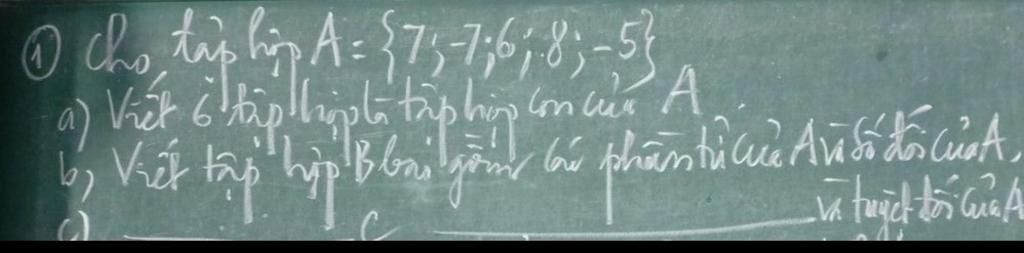 ① Cho tập hợp A = {7; -7; 6; 8; -5}
a) Viết 6 tập hợp là tập hợp con của A
b) Viết tập hợp B bao gồm các phần tử của A và số đối của A.
c) ____ C ____ và tuyệt đối của A